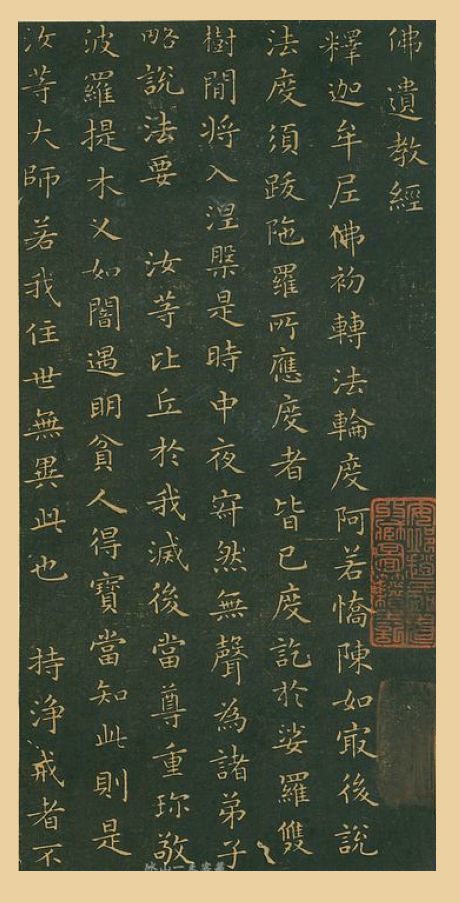 佛遺教經
釋迦牟尼佛初轉法輪度阿若憍陳如冣後說
法度須跋陁羅所應度者皆已度訖於娑羅雙
樹間将入涅槃是時中夜寂然無聲為諸弟子
略說法要 汝等比丘於我滅後當尊重珎敬
波羅提木叉如闇遇明貧人得寶當知此則是
汝等大師若我住世無異此也 持淨戒者不